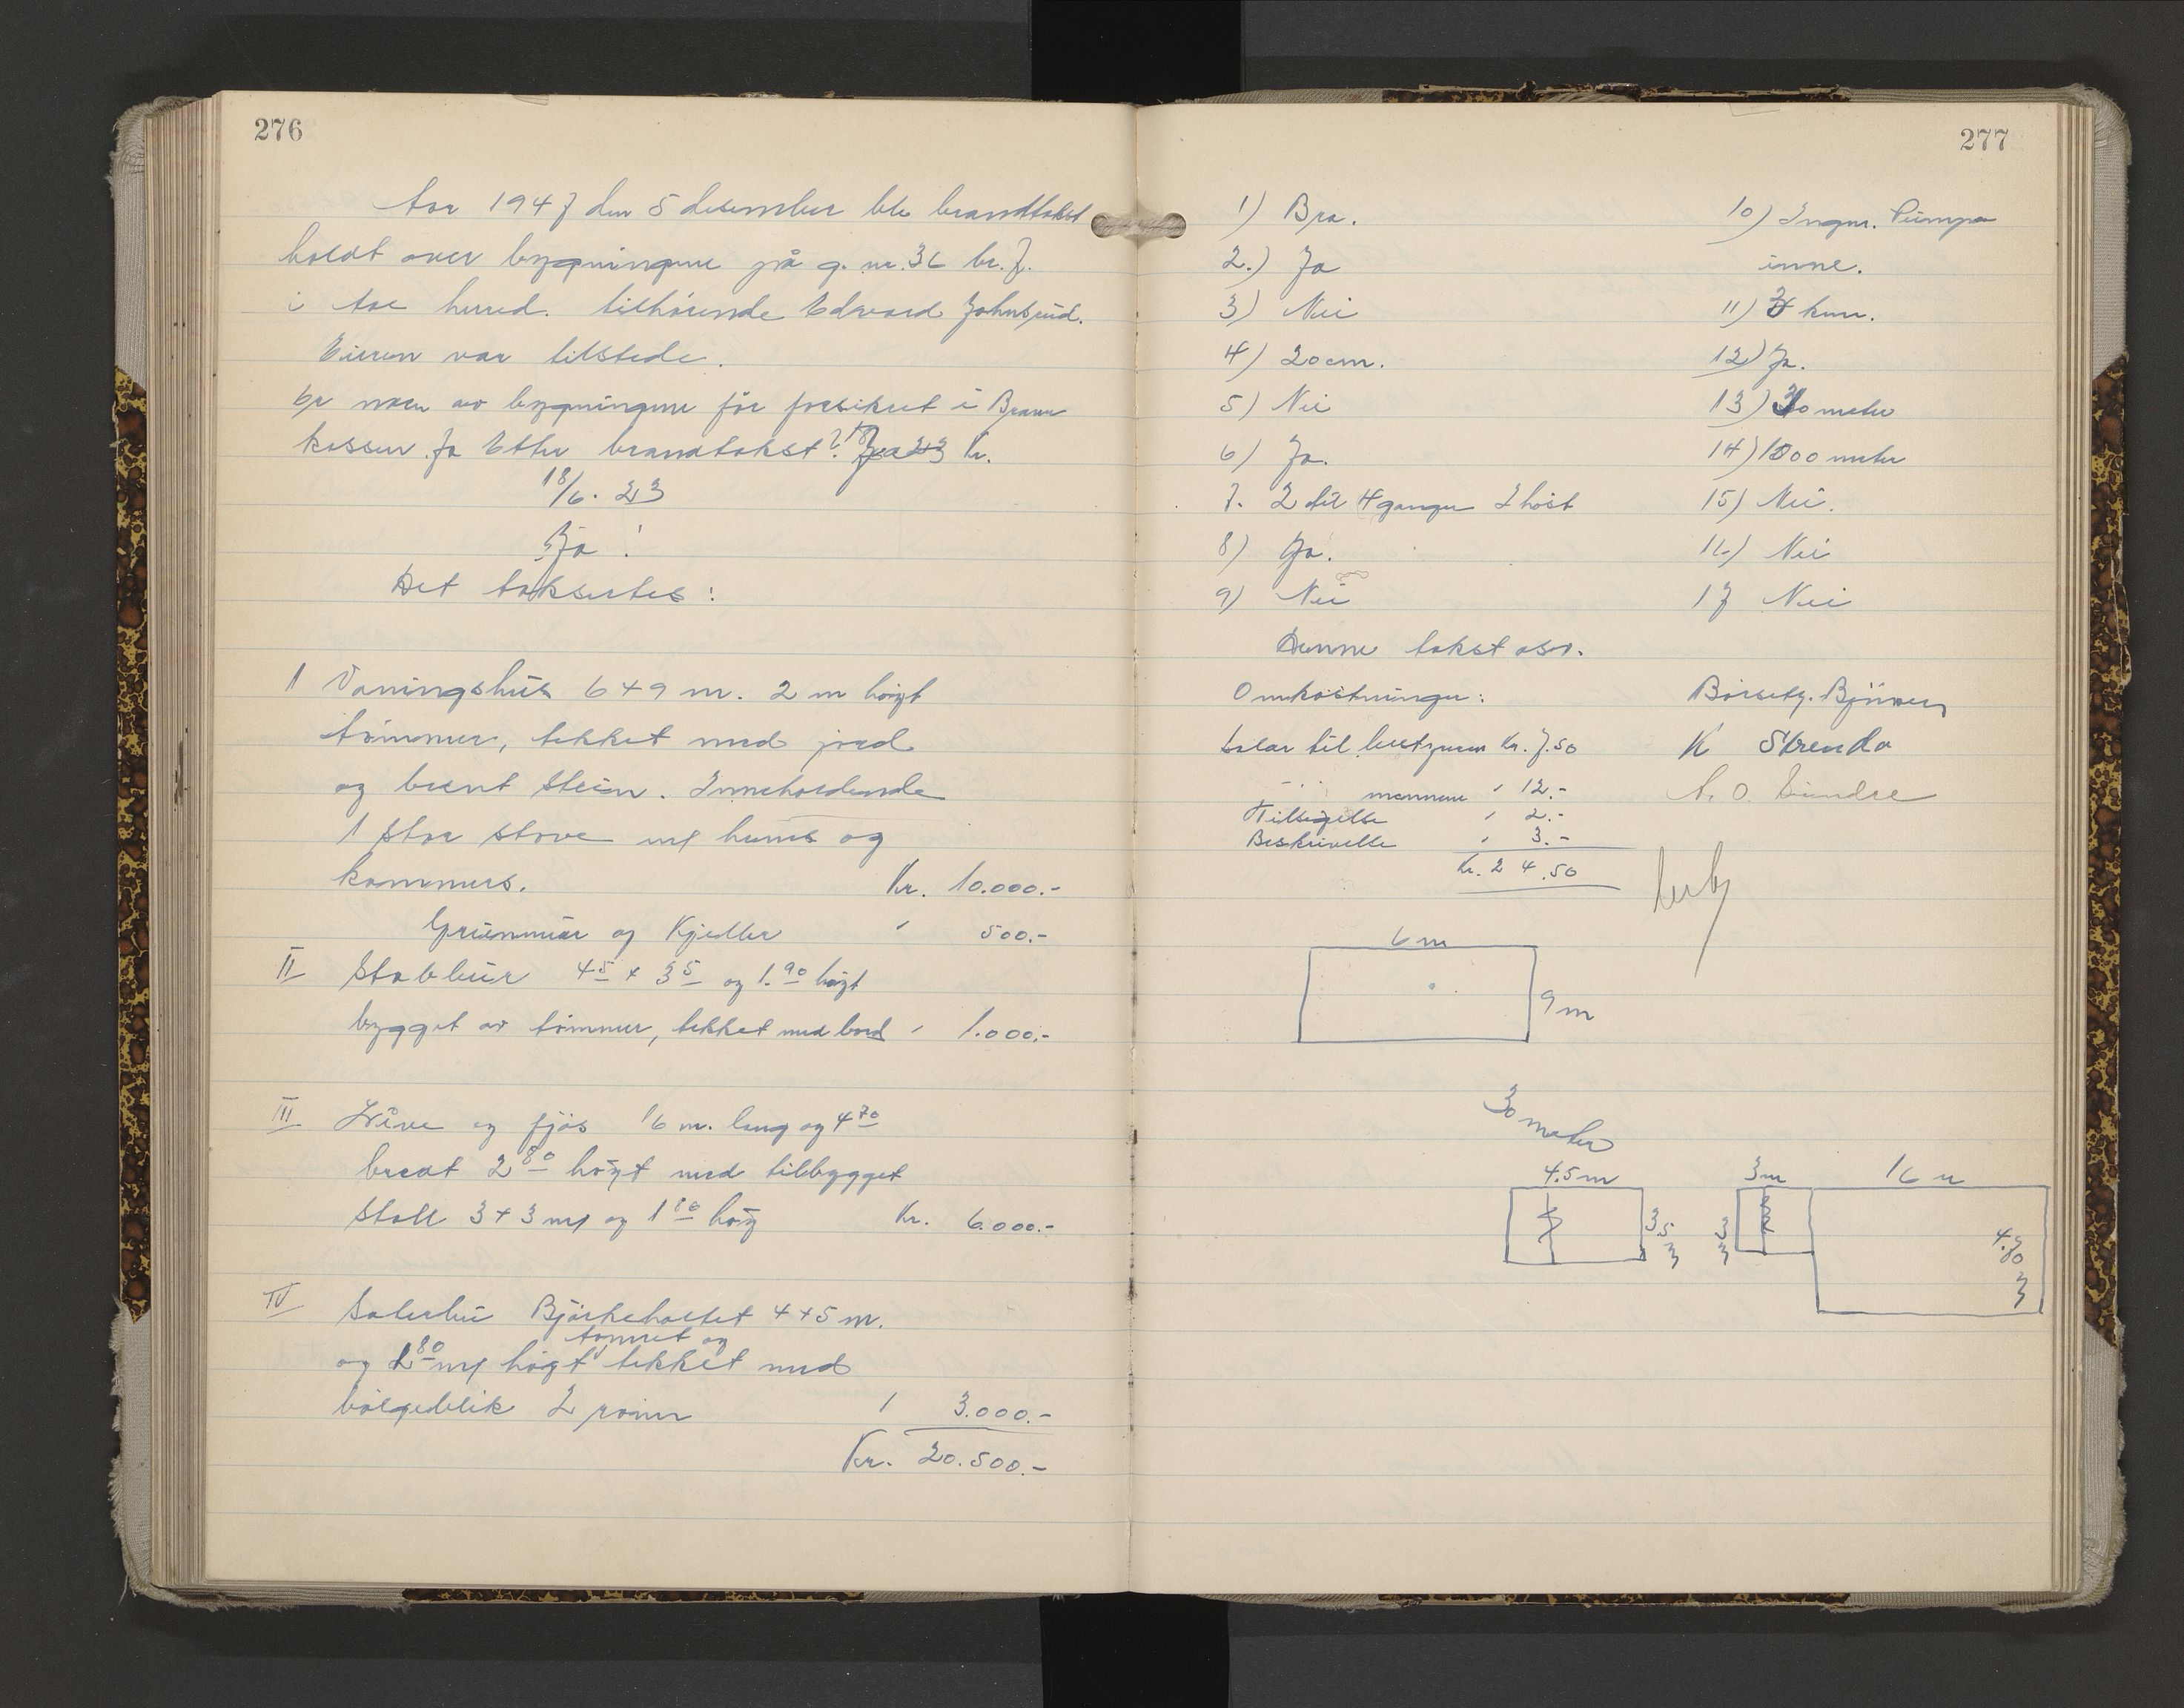 276
Aar 1947 den 5 desember ble brandtakst
holdt over bygningene på g. nr. 36 br. 7.
i herred. tilhørende Edvard Johnsrud.
Eieren var tilstede.
Er noen av bygningene før forsikret i Brann
kassen. Ja Etter brandtakst? Kr.
18/6. 23
Ja!
Det taksertes:
1 Vaningshus 6+9 m. 2 m høigt
tømmer, tekket med jord
og brent stein. Inneholdende
1 stor stove m/ hems og
kammers. Kr. 10.000.-
Grunnmur og Kjeller " 500.-
II Stabbur 4 5 + 3 5 og 1. 90 høigt
bygget av tømmer, tekket med bord " 1.000.-
III Låve og fjøs 16 m. lang og 4 70
bredt 2 80 høigt med tilbygget
Stall 3+3 m/ og 1 80 høig Kr. 6.000.-
IV Saterbu Bjørkeholtet 4+5 m.
tømret og
og 1 80 m/ høgt tekket med
bølgeblik 2 romm " 3.000.-
Kr. 20.500.-
277
1) Bra.
2.) Ja
3) Nei
4) 20 cm.
5) Nei
6) Ja.
7. 2 til 4 ganger I høst
8) Ja.
9) Nei
10) Ingen. Pumpa
inne.
11) 3 km.
12) Ja.
13) 30 meter
14) 1500 meter
15) Nei.
16) Nei
17 Nei
Denne takst osv.
Omkostninger:
Salar til Kr. 7.50
- " - mennene " 12.-
Tilsigelse " 2.-
Beskrivelse " 3.-
Kr. 24.50
K Strenda
A. O.
6 m
9 m
30 meter
4.5 m
3.5 m
3 m
3 m
16 m
4.70 m